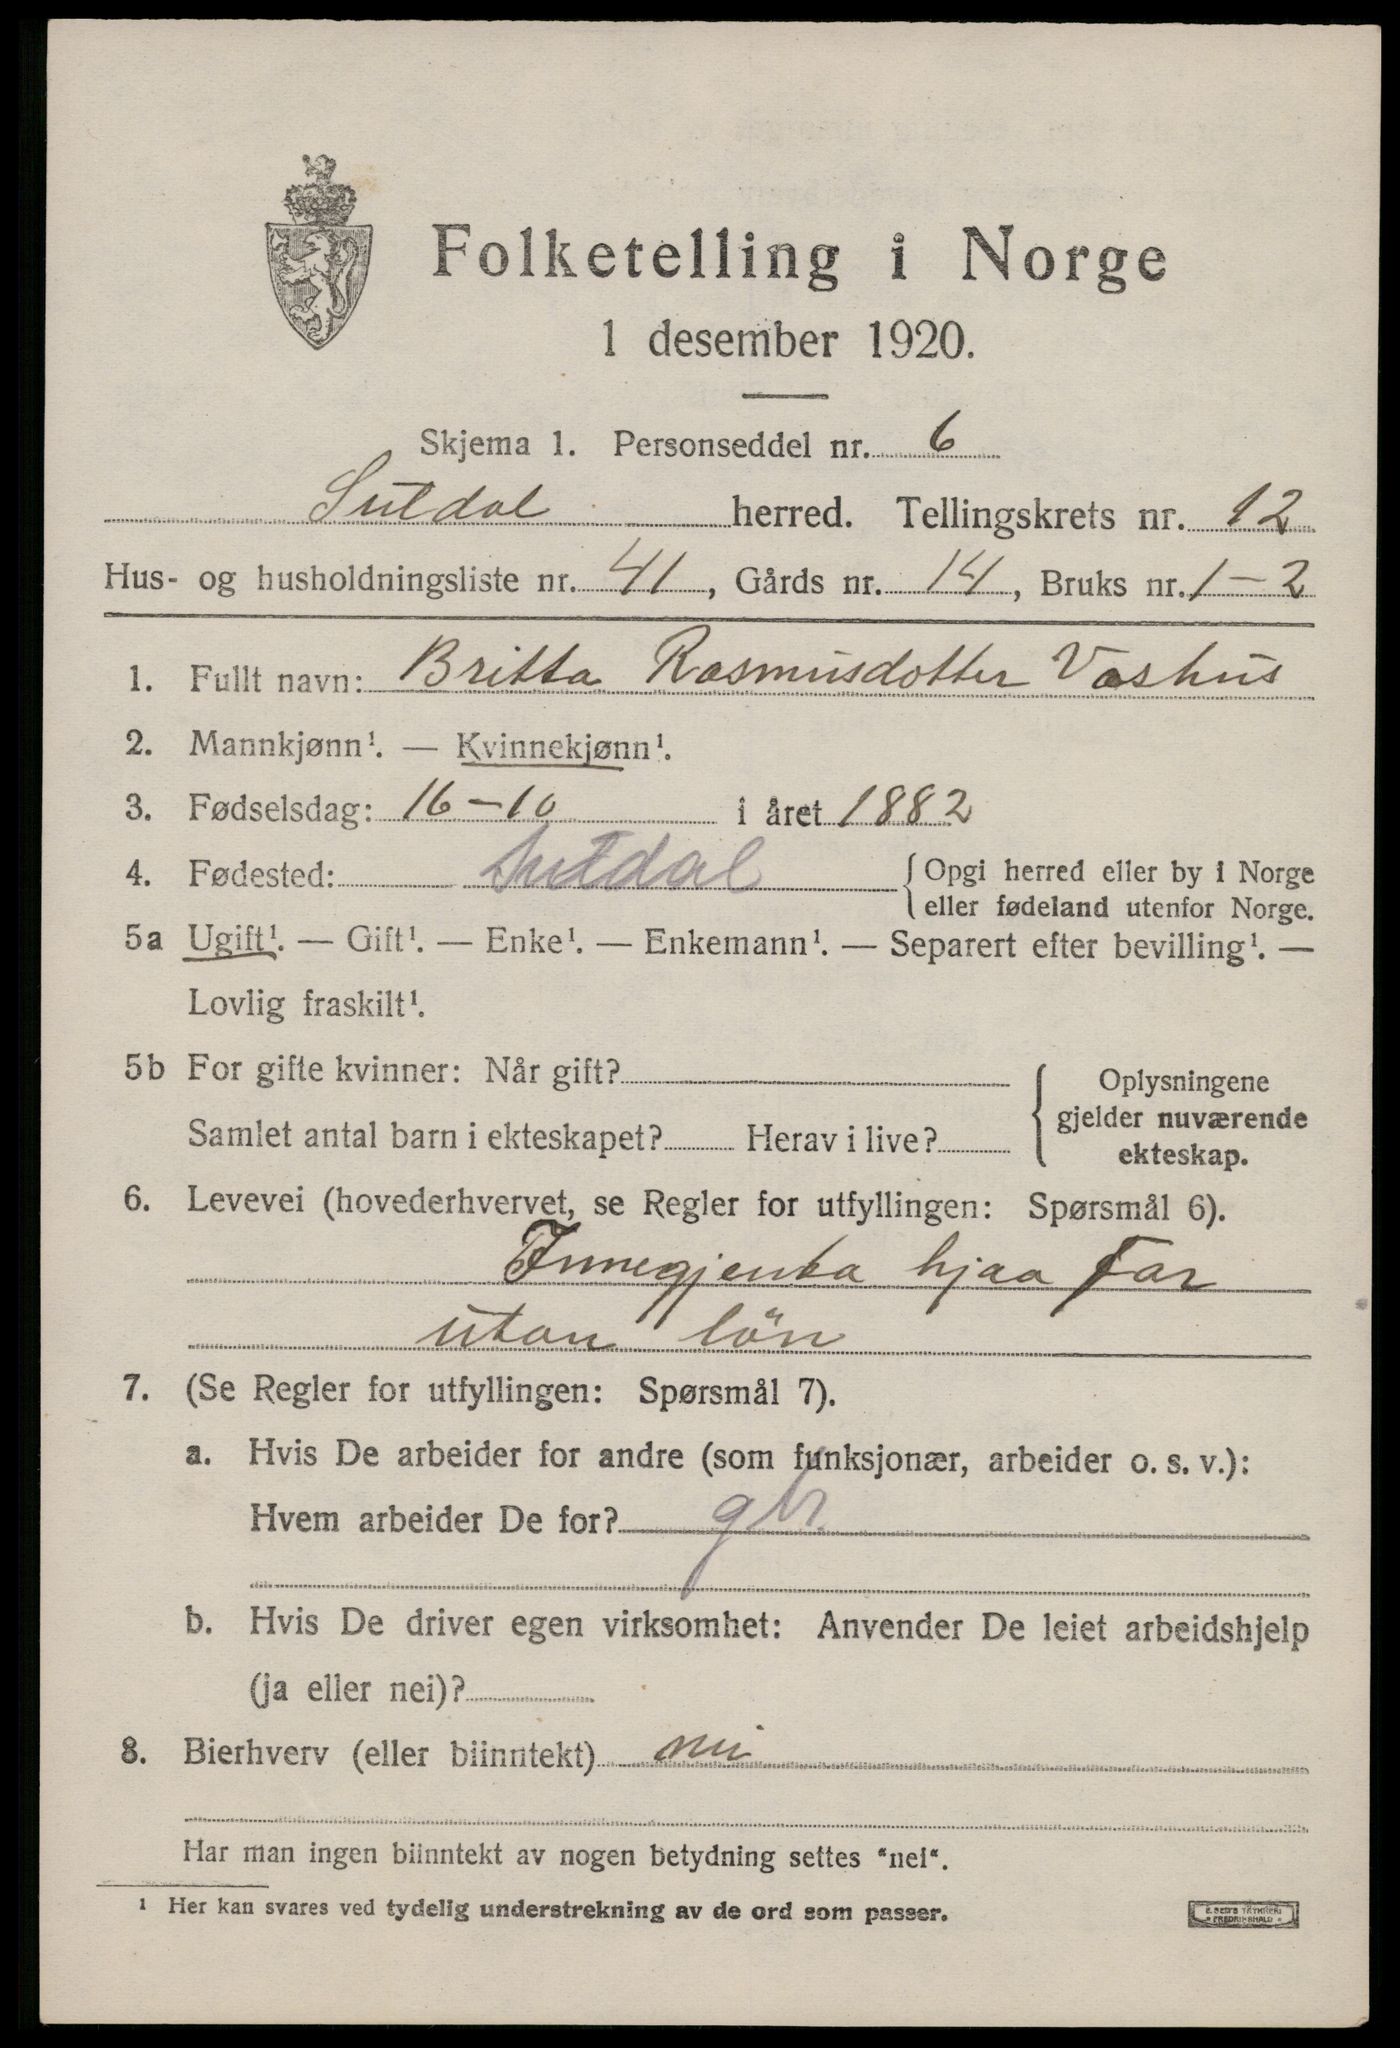 Folketelling i Norge
1 desember 1920.
Skjema 1. Personseddel nr. 6
Suldal herred. Tellingskrets nr. 12
Hus- og husholdningsliste nr. 41, Gårds nr. 14, Bruks nr. 1-2
1. Fullt navn: Britta Rasmusdotter Vashus
2. Mannkjønn¹. — Kvinnekjønn¹.
3. Fødselsdag: 16-10 i året 1882
4. Fødested: Suldal { Opgi herred eller by i Norge
eller fødeland utenfor Norge.
5a Ugift¹. — Gift¹. — Enke¹. — Enkemann¹. — Separert efter bevilling¹. —
Lovlig fraskilt¹.
5b For gifte kvinner: Når gift? { Oplysningene
gjelder nuværende
Samlet antal barn i ekteskapet? Herav i live?
ekteskap.
6. Levevei (hovederhvervet, se Regler for utfyllingen: Spørsmål 6).
Innegjenta hjaa Far
utan løn
7. (Se Regler for utfyllingen: Spørsmål 7).
a. Hvis De arbeider for andre (som funksjonær, arbeider o. s. v.):
Hvem arbeider De for? gbr.
b. Hvis De driver egen virksomhet: Anvender De leiet arbeidshjelp
(ja eller nei)?
8. Bierhverv (eller biinntekt) nei
Har man ingen biinntekt av nogen betydning settes "nei".
¹ Her kan svares ved tydelig understrekning av de ord som passer.
E. SEM'S TRYKKERI
FREDRIKSHALD